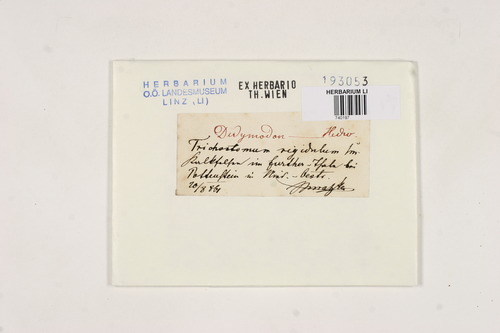 HERBARIUM
O.Ö. LANDESMUSEUM
LINZ (LI)
EX HERBARIO
TH. WIEN
193053
HERBARIUM LI
Didymodon — Hedw.
Trichostomum rigidulum
Kalkfelsen im Further-Thale bei
Pottenstein in Nied.-Oestr.